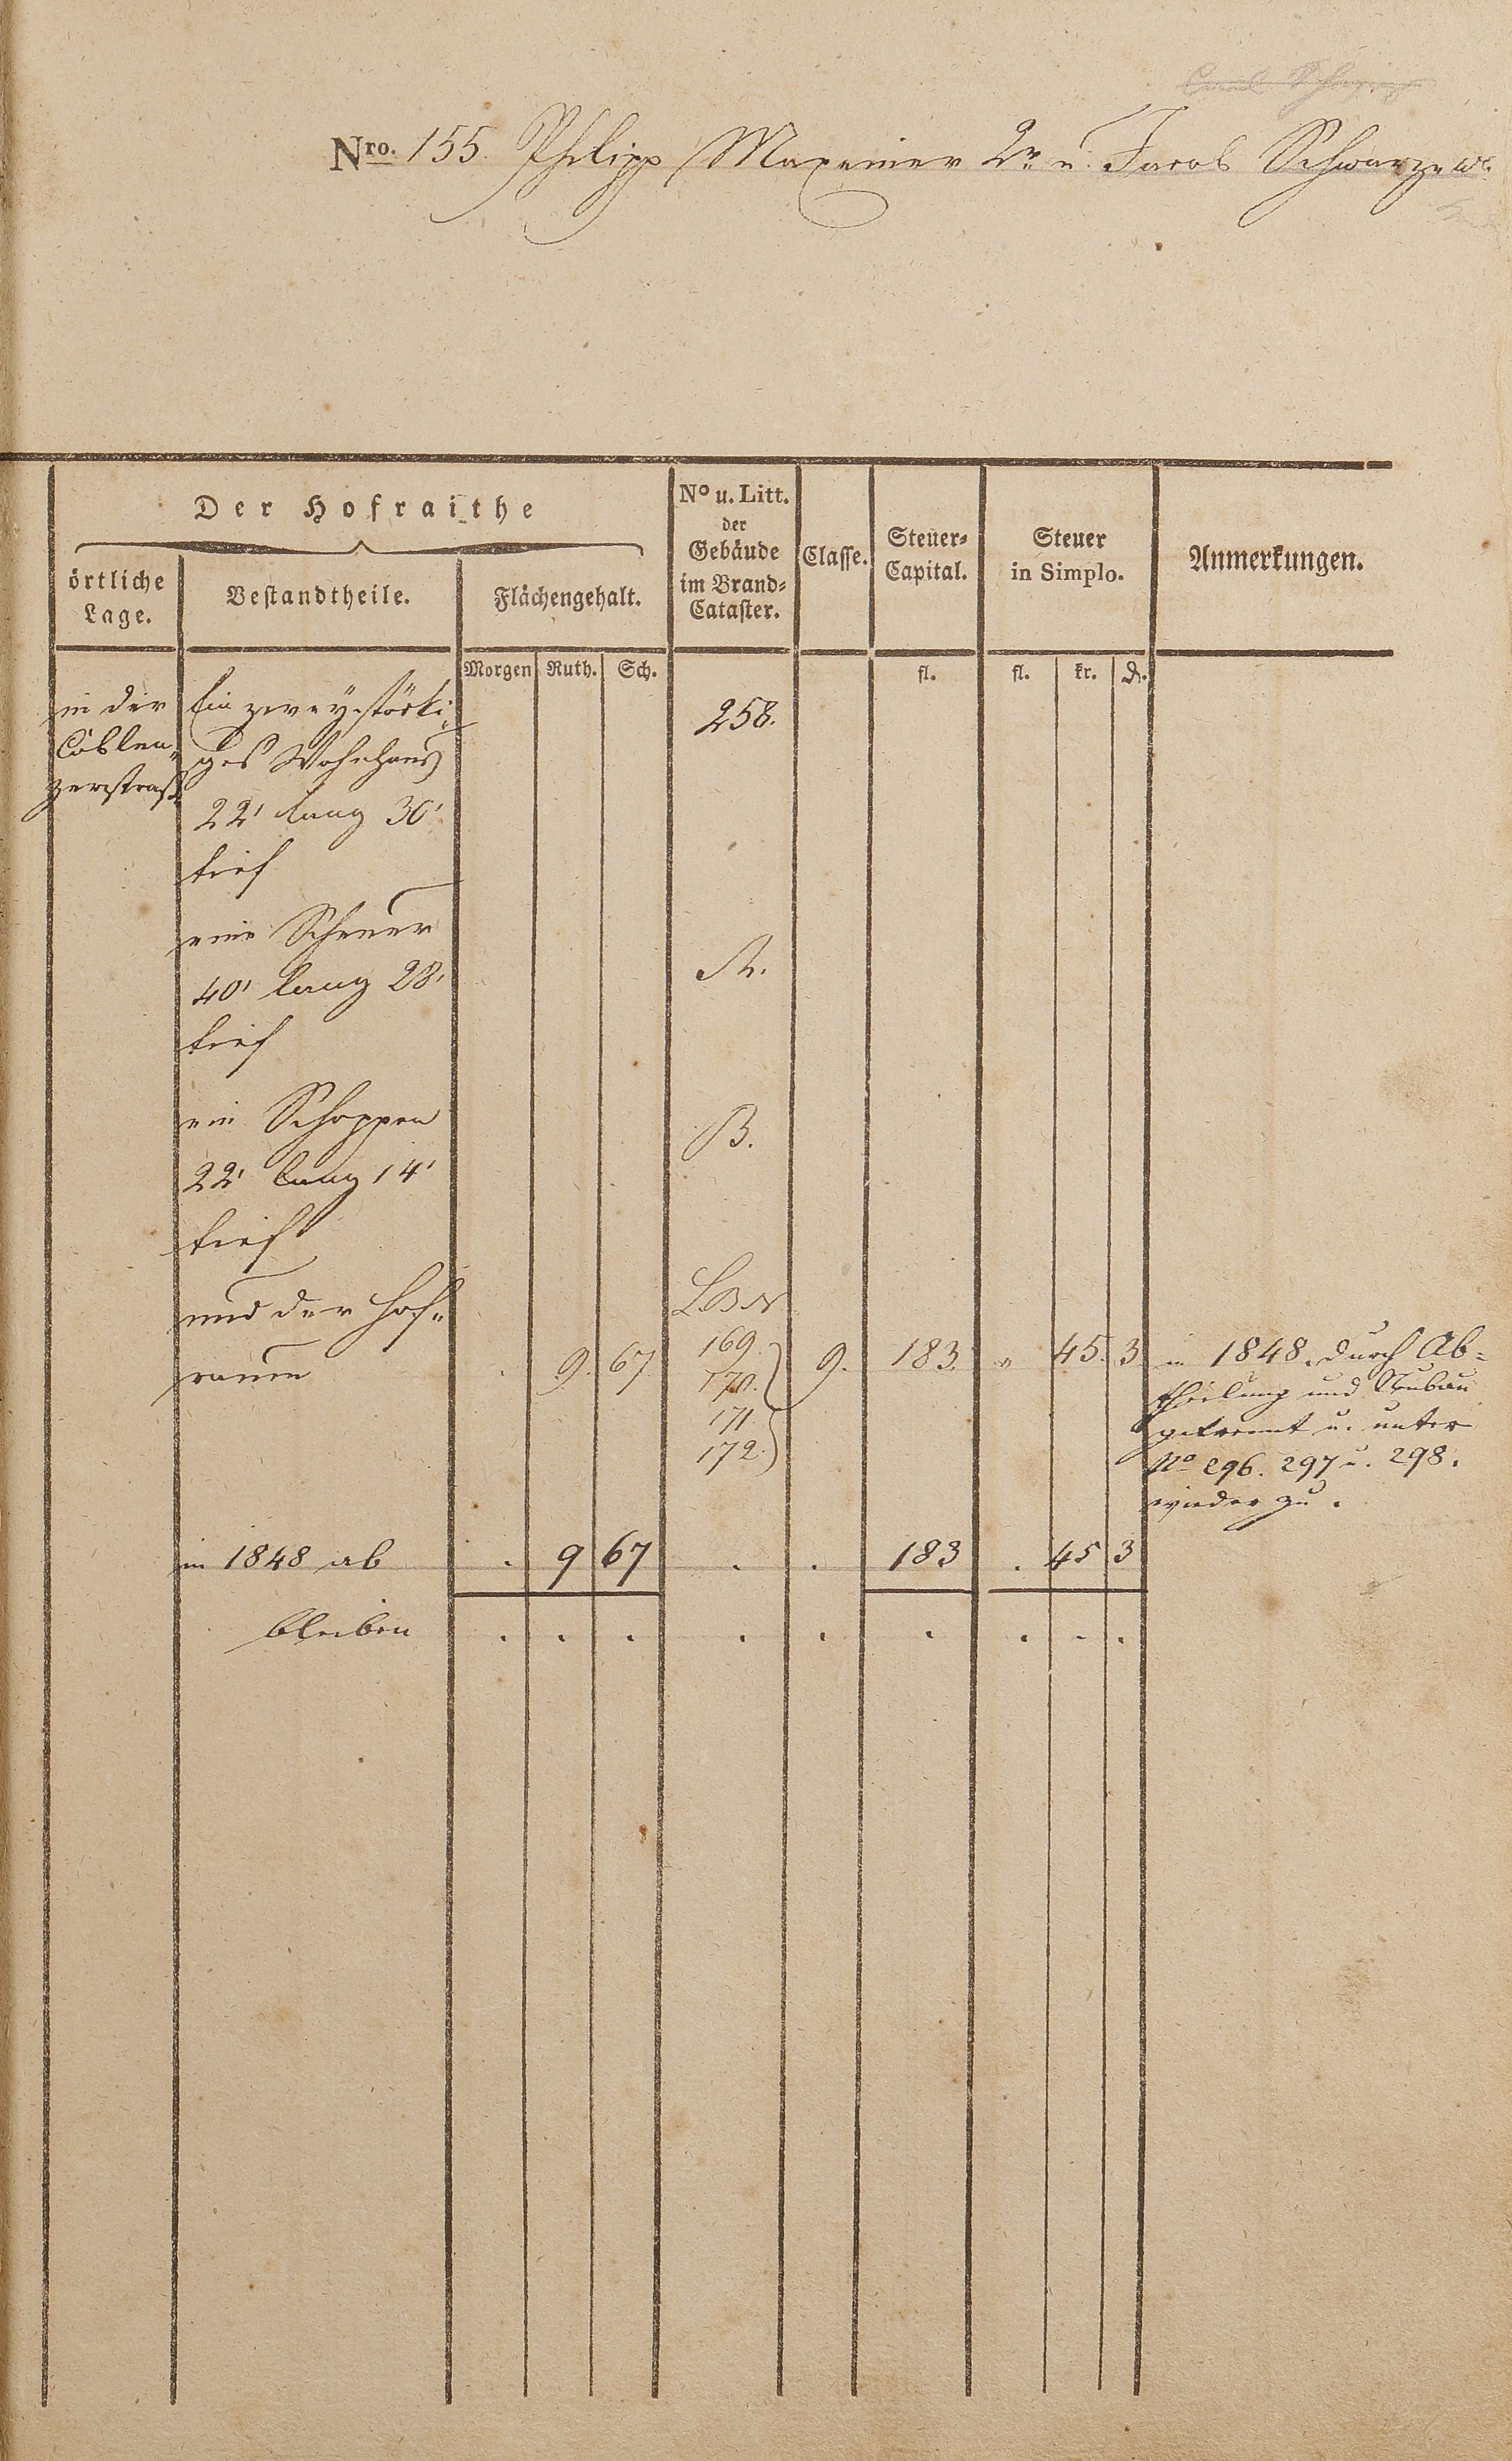 Nro. 155. Philipp Maxeiner 2r u. Jacob Schwarz ww.
Der Hofraithe
örtliche Lage.
Bestandtheile.
Flächengehalt.
No u. Litt. der Gebäude im Brand-Cataster.
Classe.
Steuer-Capital.
Steuer in Simplo.
Anmerkungen.
Morgen Ruth. Sch. fl. fl. kr. d.
in der Ein zweystöcki- 258.
Coblen- ges Wohnhaus
zerstraße 22' lang 30'
tief
eine Scheuer
40' lang 28' A.
tief
ein Schoppen B.
22' lang 14'
tief
und der Hof- LBN
raum . 9. 67 169. 170. 171. 172. 9. 183. " 45. 3
in 1848 durch Ab-
theilung und Neubau
getrennt u. unter
No 296. 297 u. 298.
wieder zu.
in 1848 ab . 9 67 . . 183 . 45 3
bleiben . . . . . . . . .